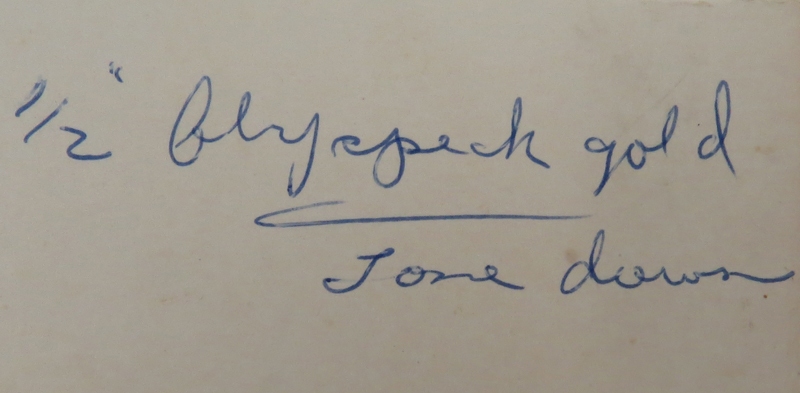 1/2" flyspeck gold
Tone down